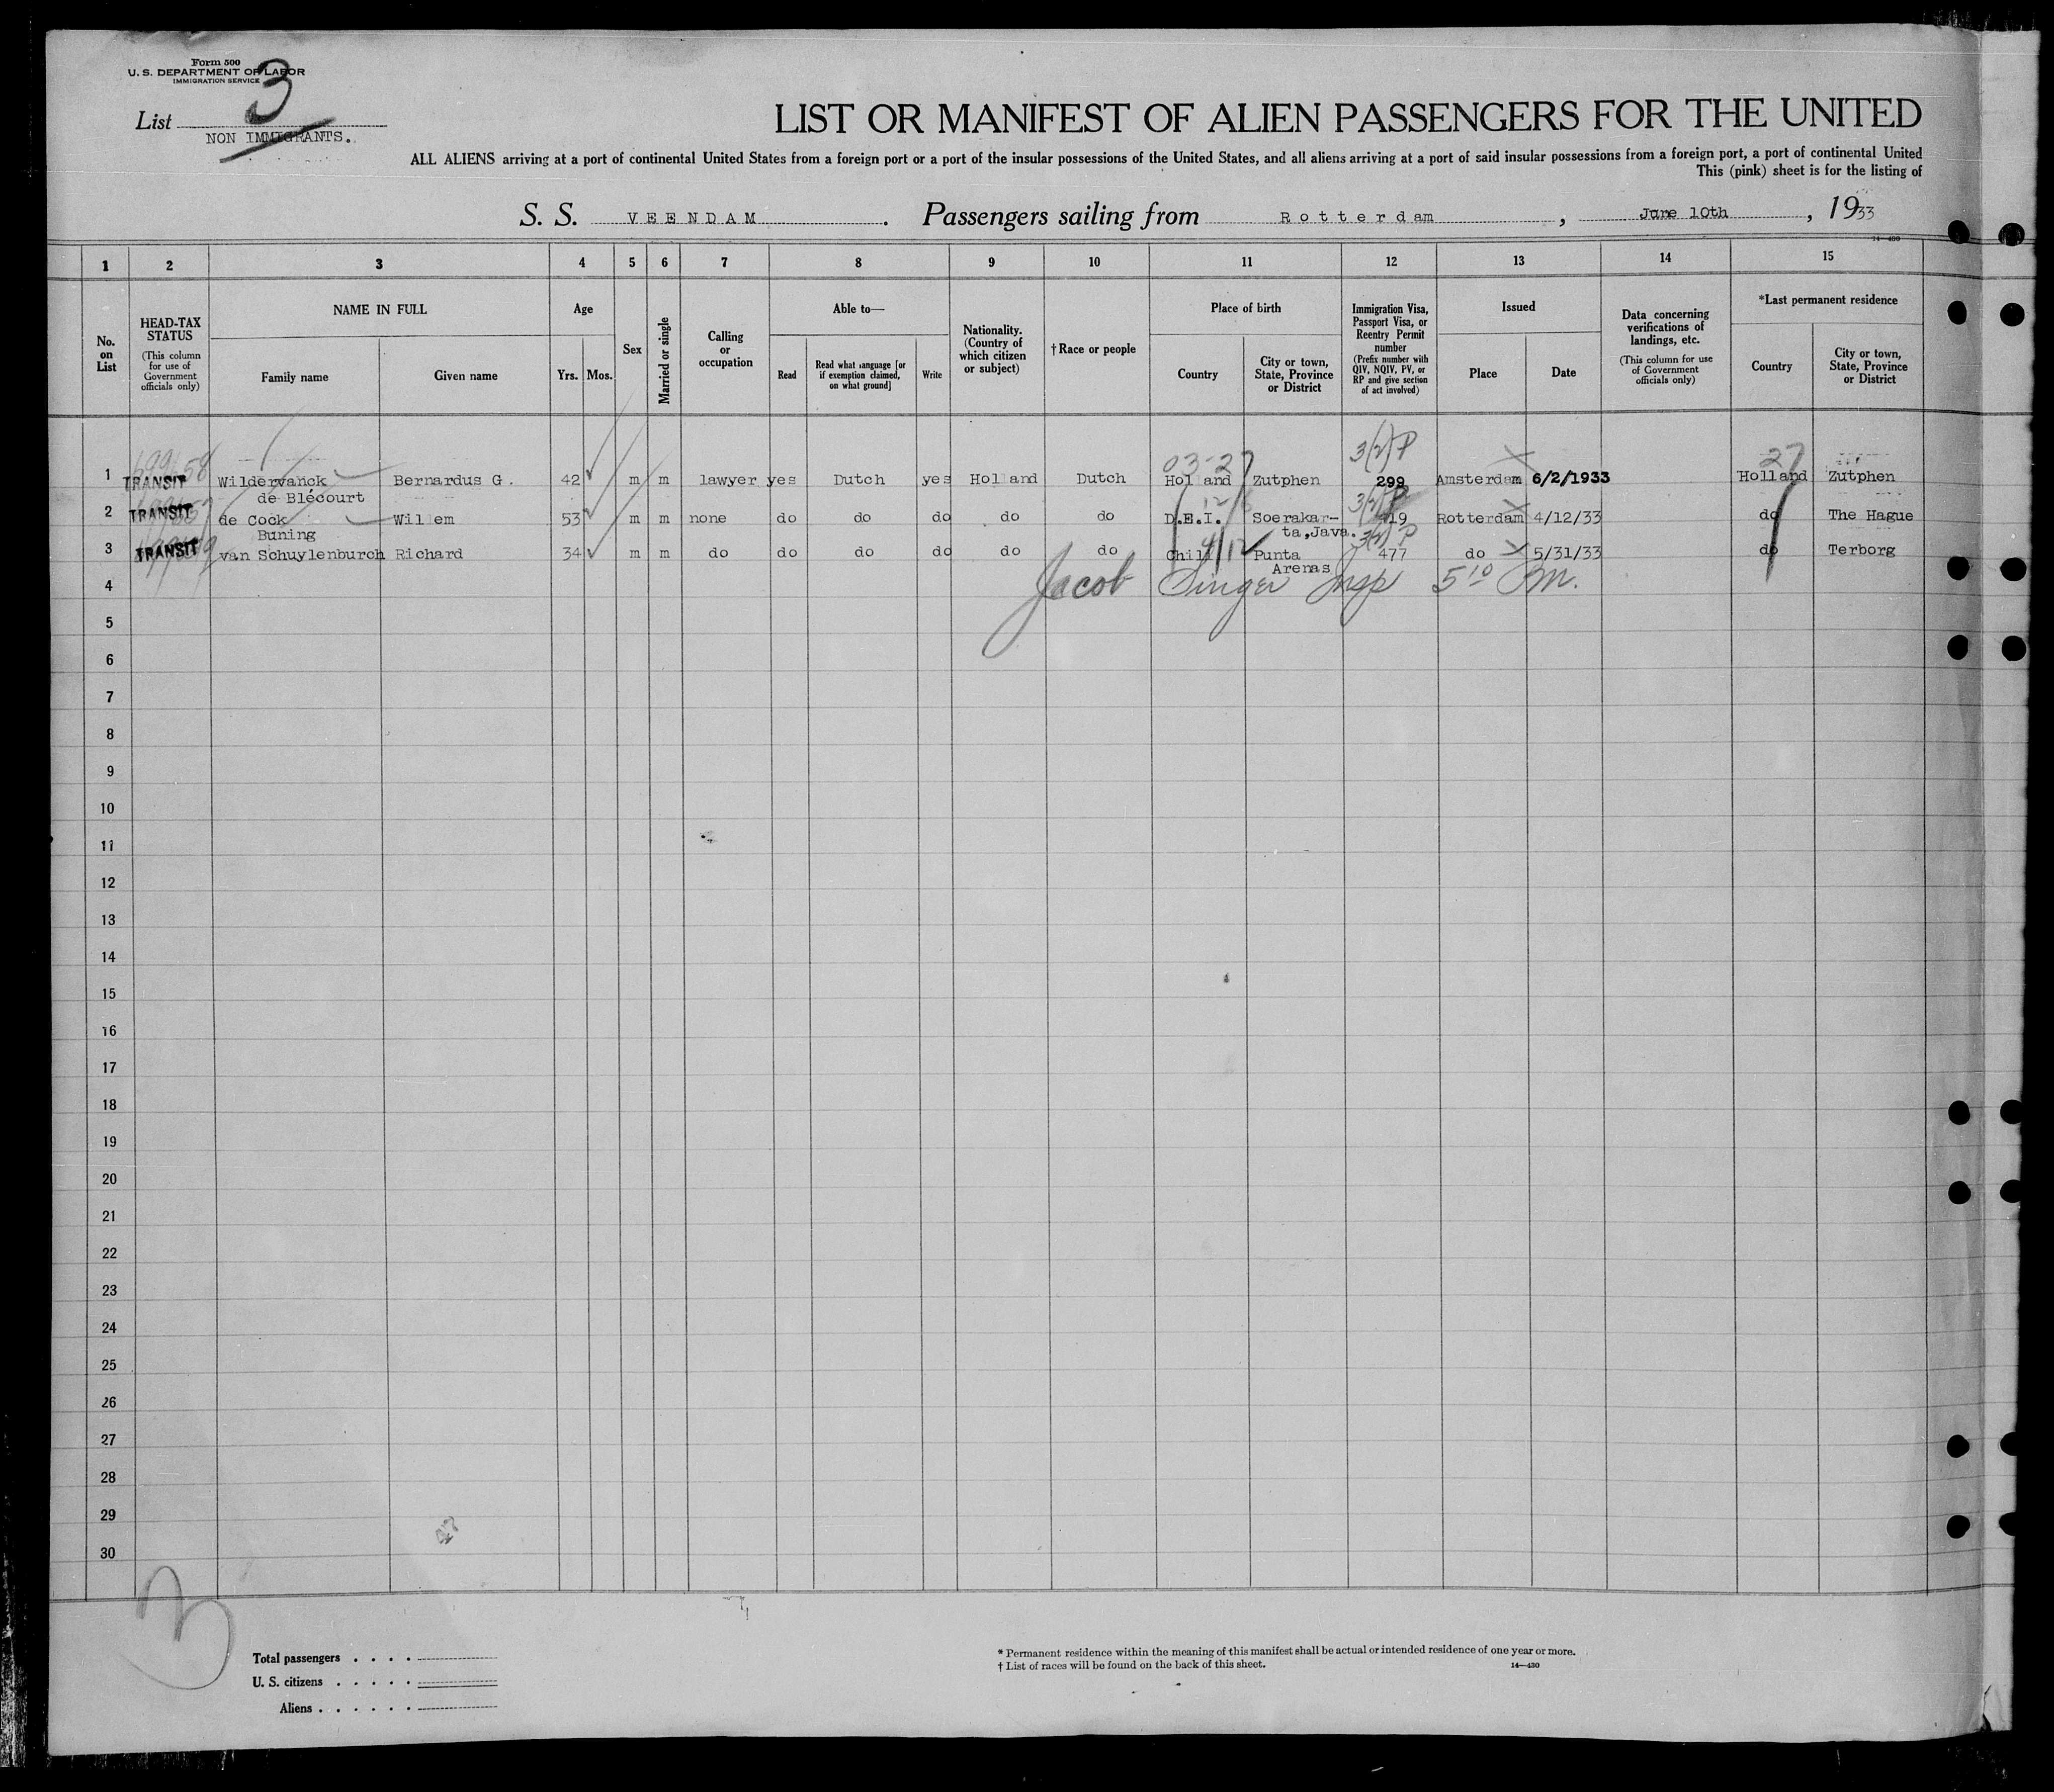 Form 500
U. S. DEPARTMENT OF LABOR
IMMIGRATION SERVICE
3
List
NON IMMIGRANTS.
LIST OR MANIFEST OF ALIEN PASSENGERS FOR THE UNITED
ALL ALIENS arriving at a port of continental United States from a foreign port or a port of the insular possessions of the United States, and all aliens arriving at a port of said insular possessions from a foreign port, a port of continental United
This (pink) sheet is for the listing of
S. S. VEENDAM . Passengers sailing from Rotterdam , June 10th , 1933
14—430
1 2 3 4 5 6 7 8 9 10 11 12 13 14 15
No. on List
HEAD-TAX STATUS
(This column for use of Government officials only)
NAME IN FULL
Family name
Given name
Age
Yrs. Mos.
Sex
Married or single
Calling or occupation
Able to—
Read
Read what language [or if exemption claimed, on what ground]
Write
Nationality. (Country of which citizen or subject)
†Race or people
Place of birth
Country
City or town, State, Province or District
Immigration Visa, Passport Visa, or Reentry Permit number
(Prefix number with QIV, NQIV, PV, or RP and give section of act involved)
Issued
Place
Date
Data concerning verifications of landings, etc.
(This column for use of Government officials only)
*Last permanent residence
Country
City or town, State, Province or District
03-27 3(2)P 27
1 TRANSIT Wildervanck Bernardus G. 42 m m lawyer yes Dutch yes Holland Dutch Holland Zutphen 299 Amsterdam 6/2/1933 Holland Zutphen
de Blécourt
3(2)P
2 TRANSIT de Cock Willem 53 m m none do do do do do D.E.I. Soerakar- 419 Rotterdam 4/12/33 do The Hague
Buning ta,Java. 3(2)P
3 TRANSIT van Schuylenburch Richard 34 m m do do do do do do Chili Punta 477 do 5/31/33 do Terborg
Arenas
4 Jacob Singer Insp 5 10 M.
5
6
7
8
9
10
11
12
13
14
15
16
17
18
19
20
21
22
23
24
25
26
27
28
29
30
3
Total passengers . . . .
U. S. citizens . . . . .
Aliens . . . . . .
* Permanent residence within the meaning of this manifest shall be actual or intended residence of one year or more.
† List of races will be found on the back of this sheet. 14—430